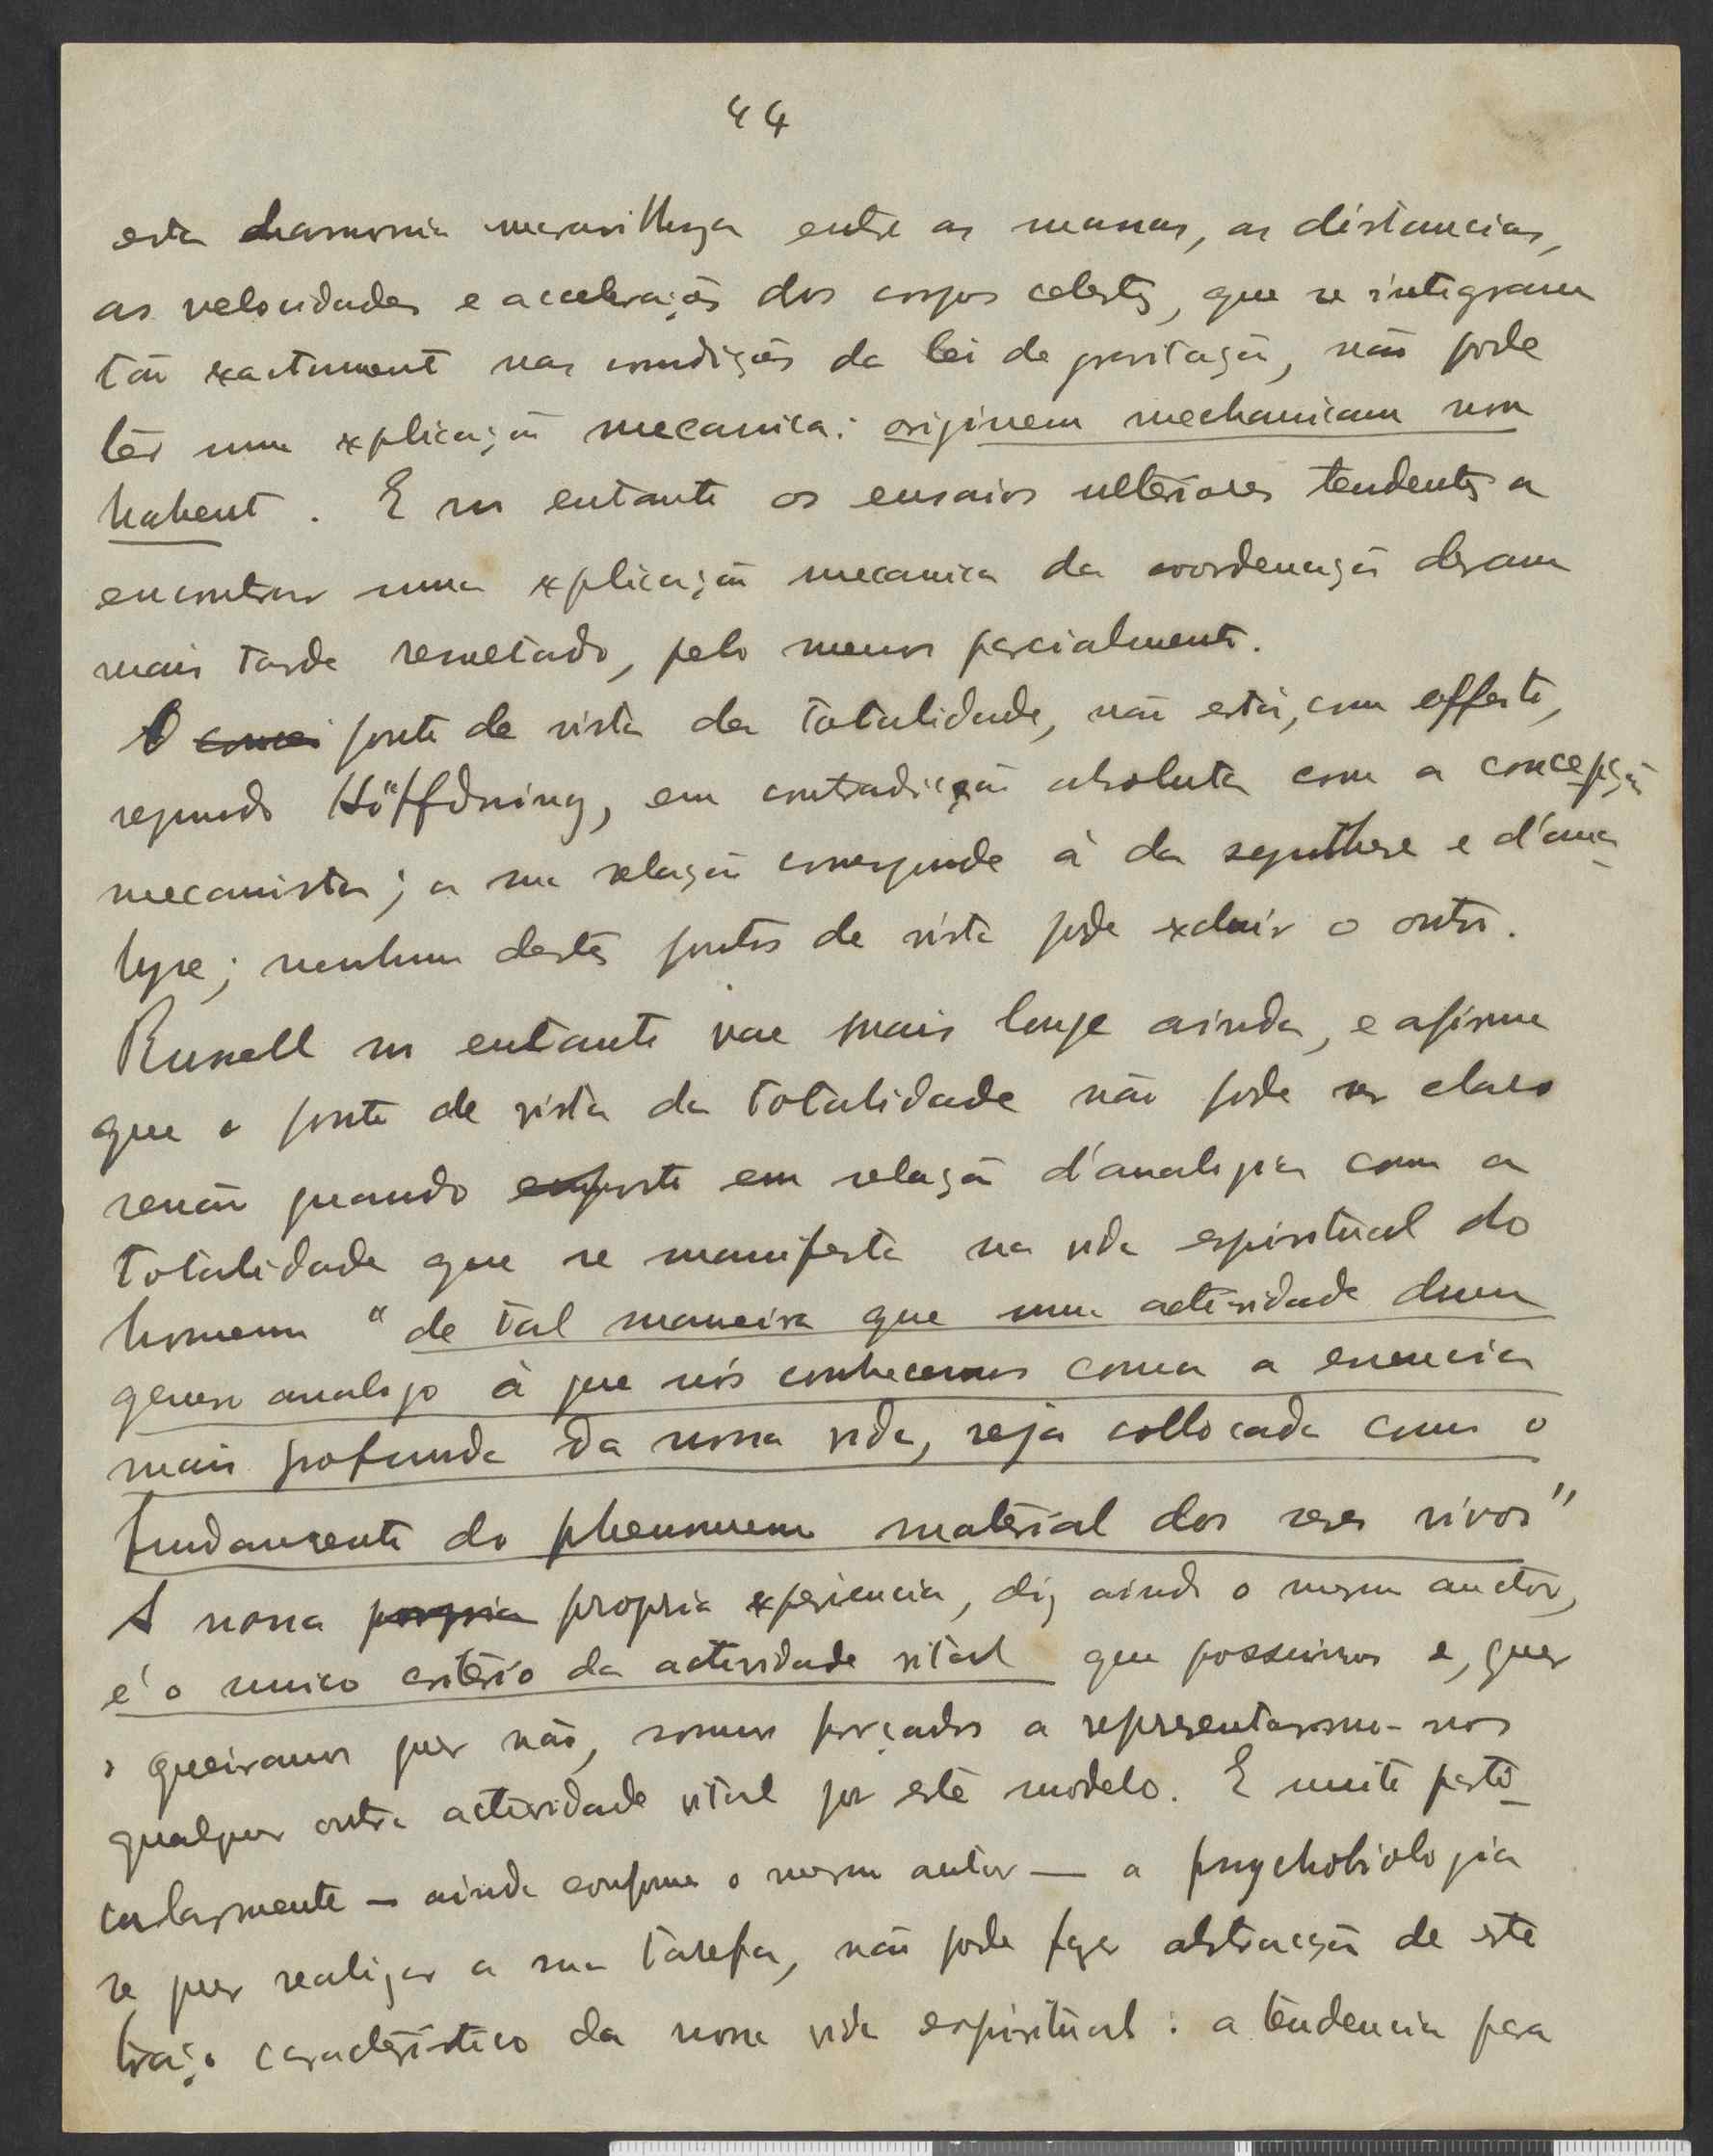 44
esta harmonia meravilhoza entre as massas, as distancias,
as velocidades e accelerações dos corpos celestes, que se integram
tão exactamente nas condições da lei de gravitação, não pode
ter uma explicação mecanica: originem mechanicam non
habent. E no entanto os ensaios ulteriores tendentes a
encontrar uma explicação mecanica da coordenação deram
mais tarde resultado, pelo menos parcialmente.
O concei ponto de vista da totalidade, não está, com effeito,
segundo Höffdning, em contradicção absoluta com a concepção
mecanista; a sua relação corresponde á da synthese e d'ana-
lyse; nenhum destes pontos de vista pode excluir o outro.
Russell no entanto vae mais longe ainda, e afirma
que o ponto de vista da totalidade não pode ser claro
senão quando posto em relação d'analogia com a
totalidade que se manifesta na vida espiritual do
homem "de tal maneira que uma actividade dum
genero analogo á que nós conhecemos como a essencia
mais profunda da nossa vida, seja collocada como o
fundamento do phenomeno material dos seres vivos"
A nossa propria propria experiencia, diz ainda o mesmo auctor,
é o unico critério da actividade vital que possuimos e, quer
o queiramos quer não, somos forçados a representarmo-nos
qualquer outra actividade vital por este modelo. E muito parti-
cularmente – ainda conforme o mesmo autor – a psychobiologia
se quer realizar a sua tarefa, não pode fazer abstracção de este
traço caracteristico da nossa vida espiritual: a tendencia para